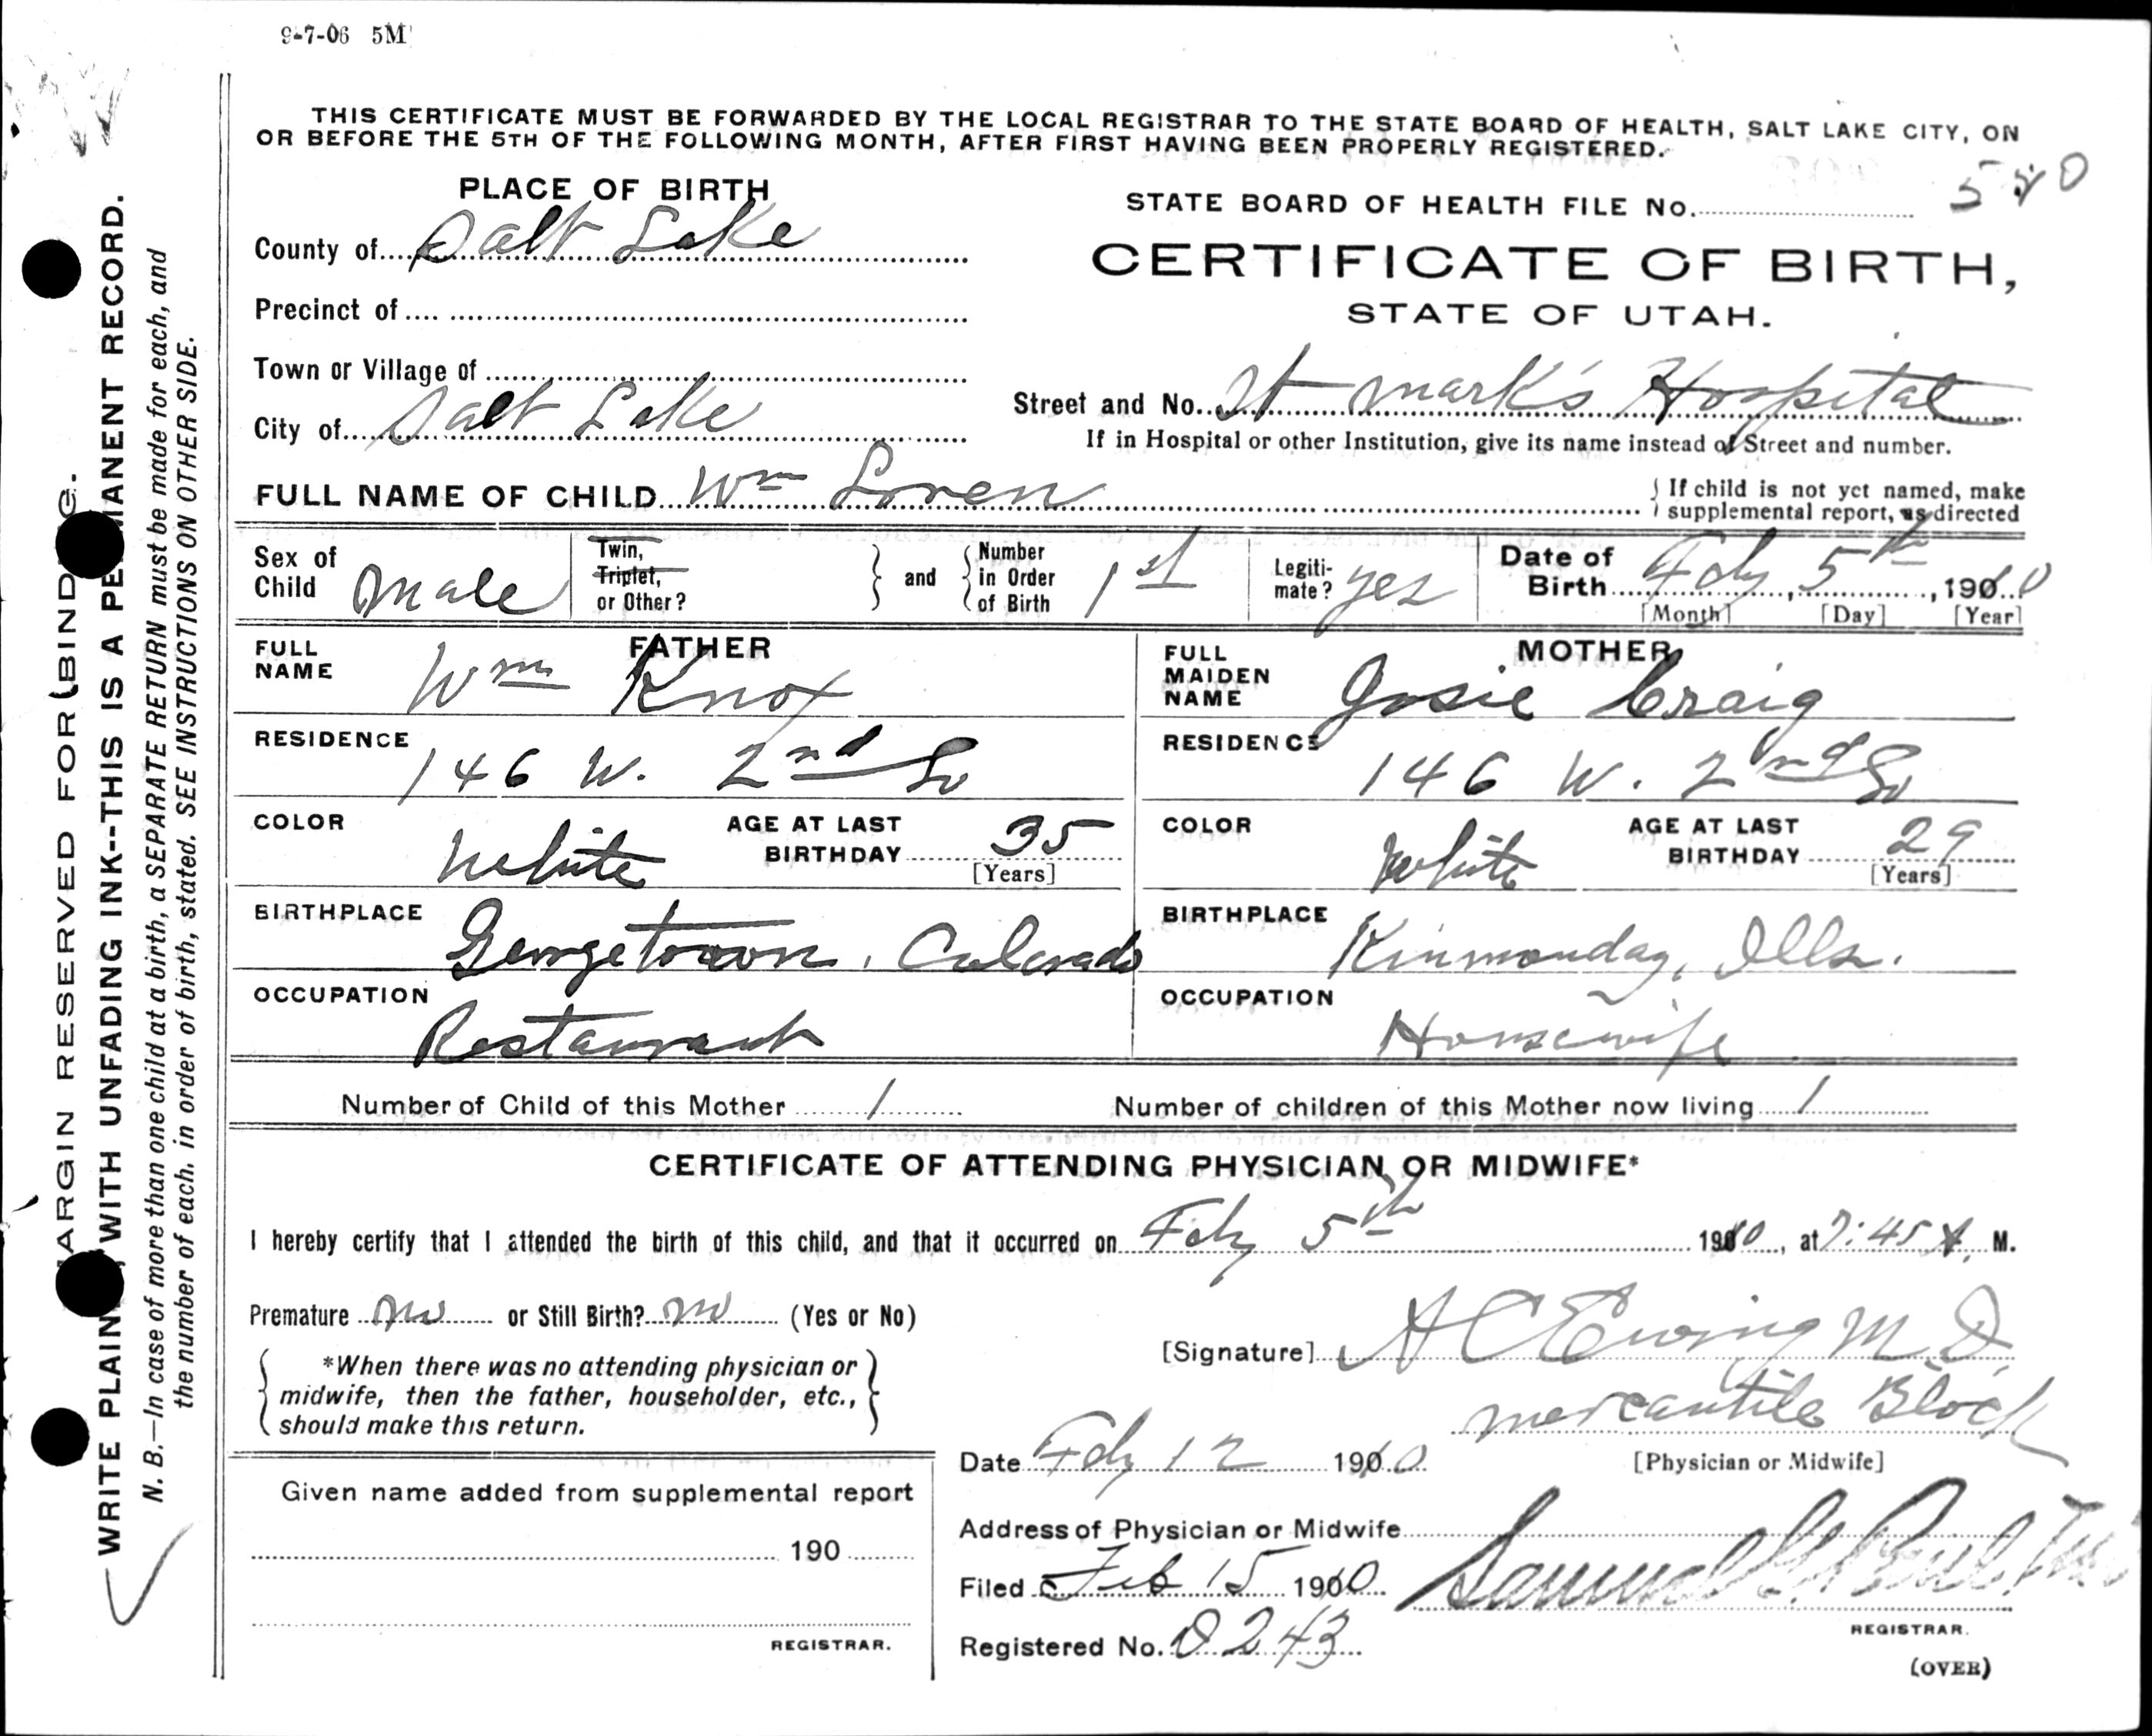 9-7-06 5M
THIS CERTIFICATE MUST BE FORWARDED BY THE LOCAL REGISTRAR TO THE STATE BOARD OF HEALTH, SALT LAKE CITY, ON
OR BEFORE THE 5TH OF THE FOLLOWING MONTH, AFTER FIRST HAVING BEEN PROPERLY REGISTERED.
PLACE OF BIRTH
County of Salt Lake
Precinct of
Town or Village of
City of Salt Lake
STATE BOARD OF HEALTH FILE No.
CERTIFICATE OF BIRTH,
STATE OF UTAH.
Street and No. St Mark's Hospital
If in Hospital or other Institution, give its name instead of Street and number.
FULL NAME OF CHILD Wm Loren
If child is not yet named, make
supplemental report, as directed
Sex of Child Male
Twin,
Triplet,
or Other?
and
Number
in Order
of Birth
1st
Legiti-
mate? yes
Date of
Birth Feby 5th, 1910
[Month] [Day] [Year]
FATHER
FULL
NAME Wm Knox
RESIDENCE 146 W. 2nd So
COLOR White
AGE AT LAST
BIRTHDAY 35
[Years]
BIRTHPLACE Georgetown, Colorado
OCCUPATION Restaurant
MOTHER
FULL
MAIDEN
NAME Josie Craig
RESIDENCE 146 W. 2nd So
COLOR White
AGE AT LAST
BIRTHDAY 29
[Years]
BIRTHPLACE Kinmunday, Ills.
OCCUPATION Housewife
Number of Child of this Mother 1
Number of children of this Mother now living 1
CERTIFICATE OF ATTENDING PHYSICIAN OR MIDWIFE*
I hereby certify that I attended the birth of this child, and that it occurred on Feby 5th 1910, at 7:45 A. M.
Premature no or Still Birth? no (Yes or No)
*When there was no attending physician or
midwife, then the father, householder, etc.,
should make this return.
[Signature] A C Ewing M D
Mercantile Block
[Physician or Midwife]
Date Feby 12 1910
Address of Physician or Midwife
Filed Feb 15 1910
Samuel G. Paul
REGISTRAR.
Registered No. 0243
(OVER)
Given name added from supplemental report
190
REGISTRAR.
MARGIN RESERVED FOR BINDING.
WRITE PLAINLY, WITH UNFADING INK--THIS IS A PERMANENT RECORD.
N. B.—In case of more than one child at a birth, a SEPARATE RETURN must be made for each, and
the number of each, in order of birth, stated. SEE INSTRUCTIONS ON OTHER SIDE.